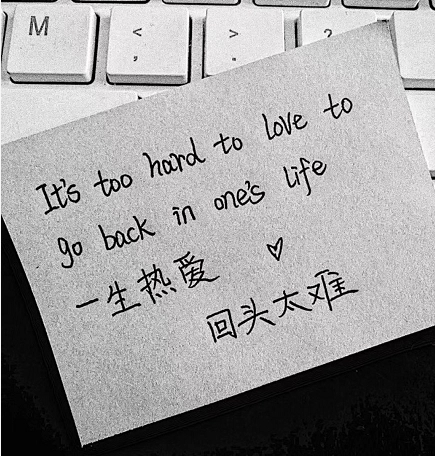 M
<
,
>
.
?
It's too hard to love to
go back in one's life
一生热爱 ♡
回头太难